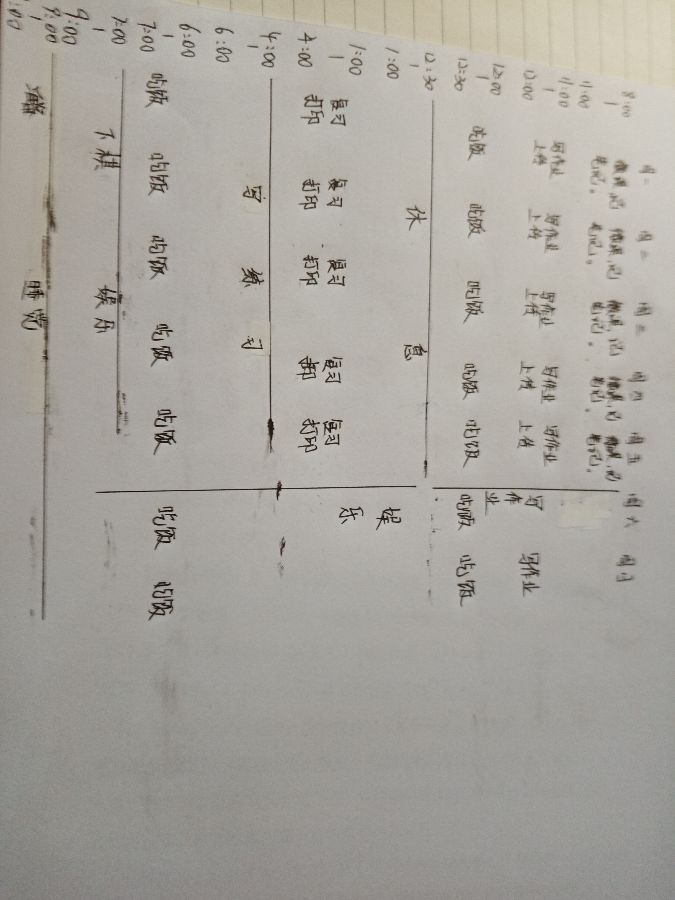 周一 周二 周三 周四 周五 周六 周日
8:00 | 11:00 微课,记笔记。 微课,记笔记。 微课,记笔记。 微课,记笔记。 微课,记笔记。
11:00 | 12:00 写作业上传 写作业上传 写作业上传 写作业上传 写作业上传 写作业 写作业
12:00 | 12:30 吃饭 吃饭 吃饭 吃饭 吃饭 吃饭 吃饭
12:30 | 1:00 休息
1:00 | 4:00 复习打印 复习打印 复习打印 复习打印 复习打印 娱乐
4:00 | 6:00 写练习
6:00 | 7:00 吃饭 吃饭 吃饭 吃饭 吃饭 吃饭 吃饭
7:00 | 9:00 下棋 娱乐
9:00 | :00 睡觉